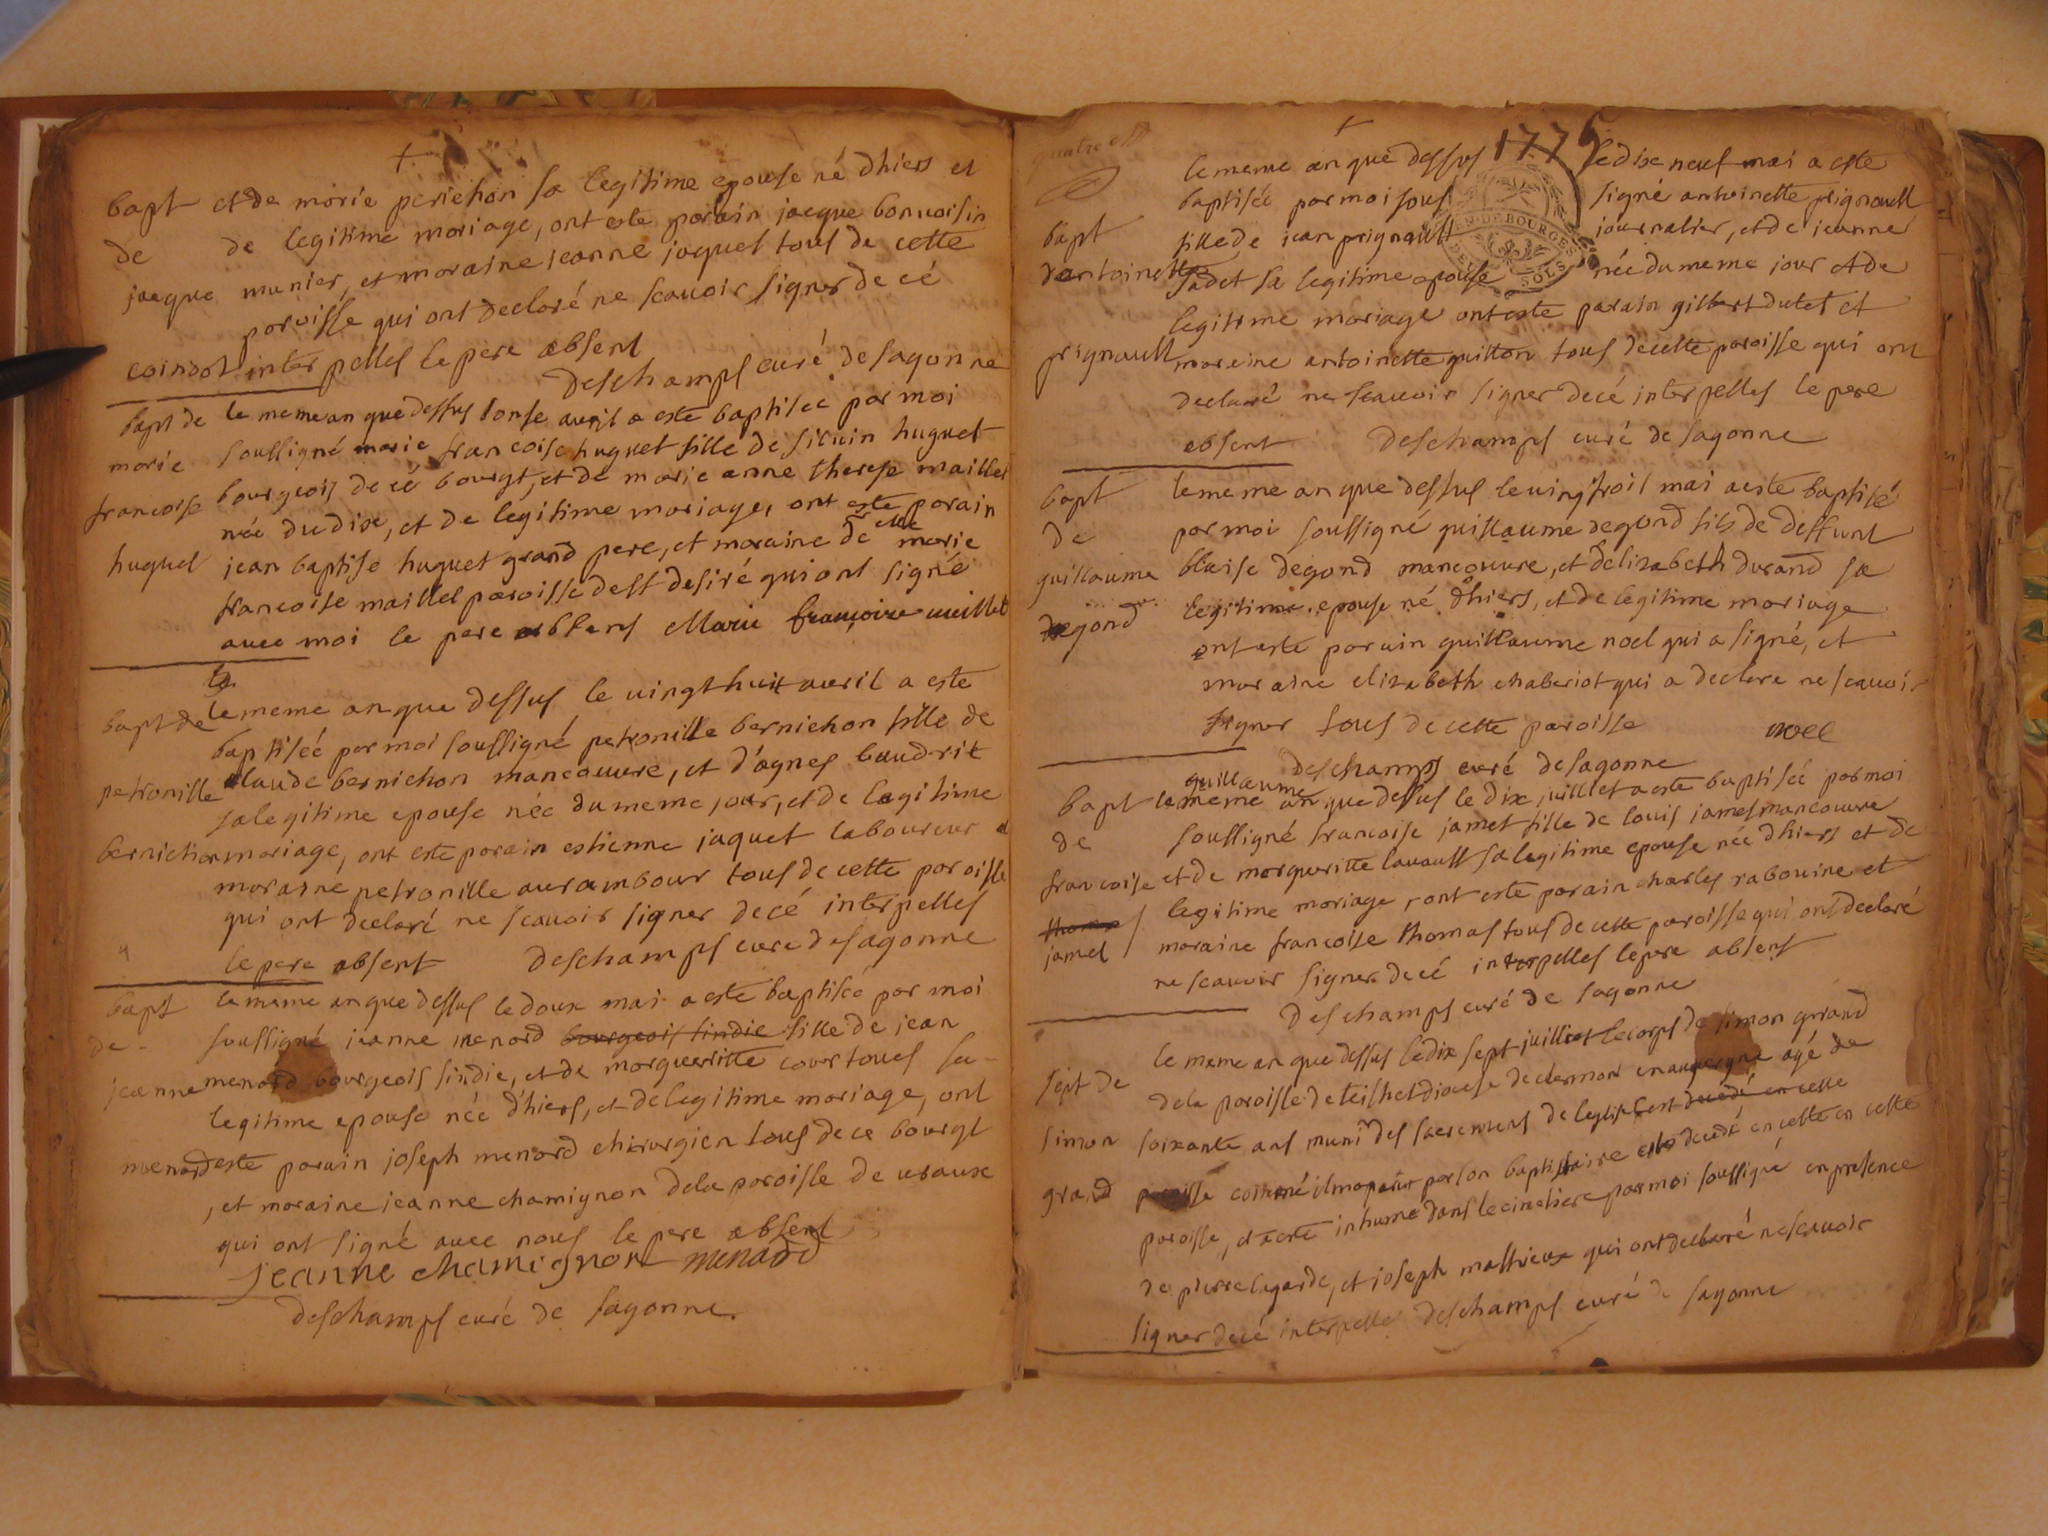 bapt et de marie perichon sa legitime epouse né d'hiers et
de de legitime mariage, ont este parain jacque bonvoisin
jacque munier, et maraine jeanne jaquet tous de cette
paroisse qui ont declaré ne scauoir signer de cé
coindot interpellés le pere absent
deschamps curé de sagonne
bapt de le meme an que dessus l'onse auril a este baptiseé par moi
marie soussigné marie francoise huguet fille de siluin huguet
francoise bourgeois de cé bourgt, et de marie anne therese maillet
née du dixe, et de legitime mariage, ont este parain
huguet jean baptise huguet grand pere, et maraine de elle marie
francoise maillet paroisse de st desiré qui ont signé
auec moi le pere absens Marie françoise meillet
le
bapt de le meme an que dessus le uingt huit auril a este
baptiseé par moi soussigné petronille bernichon fille de
petronille claude bernichon maneouure, et d'agnes baudrit
sa legitime epouse née du meme jour, et de legitime
bernichon mariage, ont este parain estienne jaquet laboureur et
maraine petronille aurambour tous de cette paroisse
qui ont declaré ne scauoir signer de cé interpellés
le pere absent deschamps curé de sagonne
bapt le meme an que dessus le douxe mai a este baptiseé par moi
de soussigné jeanne menard bourgeois sindic fille de jean
jeanne menard bourgeois sindic, et de margueritte courtouet sa
legitime epouse née d'hiers, et de legitime mariage, ont
menard este parain joseph menard chirurgien tous de ce bourgt
, et maraine jeanne chamignon de la paroisse de uraux
qui ont signé auec nous le pere absent
jeanne chamignon menard
deschamps curé de sagonne.
1775
le meme an que dessus le dixe neuf mai a este
baptiseé par moi sous signé antoinette prignault
bapt fille de jean prignault journalier, et de jeanne
d'antoinette sadet sa legitime epouse née du meme jour et de
legitime mariage ont este parain gilbert dutet et
prignault maraine antoinette guitton tous de cette paroisse qui ont
declaré ne scauoir signer de cé interpellés le pere
absent deschamps curé de sagonne
bapt le meme an que dessus le uingt trois mai a este baptisé
de par moi soussigné guillaume degond fils de deffunt
guillaume blaise degond maneouure, et d'elizabeth durand sa
degond legitime epouse né d'hiers, et de legitime mariage
ont este parain guillaume noel qui a signé, et
maraine elizabeth chaberiot qui a declare ne scauoir
signer tous de cette paroisse noel
guillaume deschamps curé de sagonne
bapt le meme an que dessus le dix juillet a este baptiseé par moi
de soussigné francoise jamet fille de louis jamet maneouure
francoise et de margueritte lauault sa legitime epouse née d'hiers et de
legitime mariage, ont este parain charles rabouine et
jamet maraine francoise thomas tous de cette paroisse qui ont declaré
ne scauoir signer de cé interpellés le pere absent
deschamps curé de sagonne
le meme an que dessus le dix sept juillet le corps de simon grand
sept de de la paroisse de diocese de clermon en auuergne agé de
simon soixante ans muni des sacremens de l'eglise est decedé en cette
grand paroisse comme par son baptistaire est decedé en cette en cette
paroisse, et a eté inhumé dans le cimetiere par moi soussigné en presence
de pierre lagarde, et joseph mathieux qui ont declaré ne scauoir
signer de cé interpellé deschamps curé de sagonne